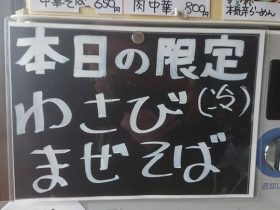 中華そば 650円 肉中華 800円
本日の限定
わさび(冷)
まぜそば